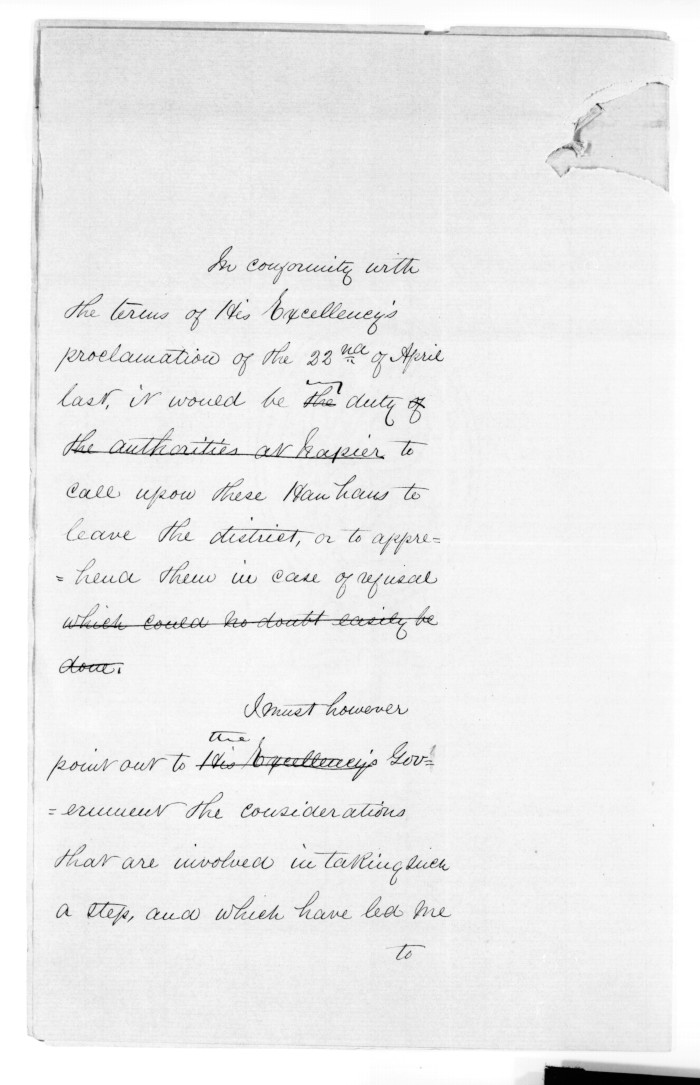 In conformity with
the terms of His Excellency's
proclamation of the 22nd of April
last, it would be my the duty of
the authorities at Napier to
call upon these Hau haus to
leave the district, or to appre=
=hend them in case of refusal
which could no doubt easily be
done.
I must however
the
point out to His Excellency's Gov=
=ernment the considerations
that are involved in taking such
a step, and which have led me
to